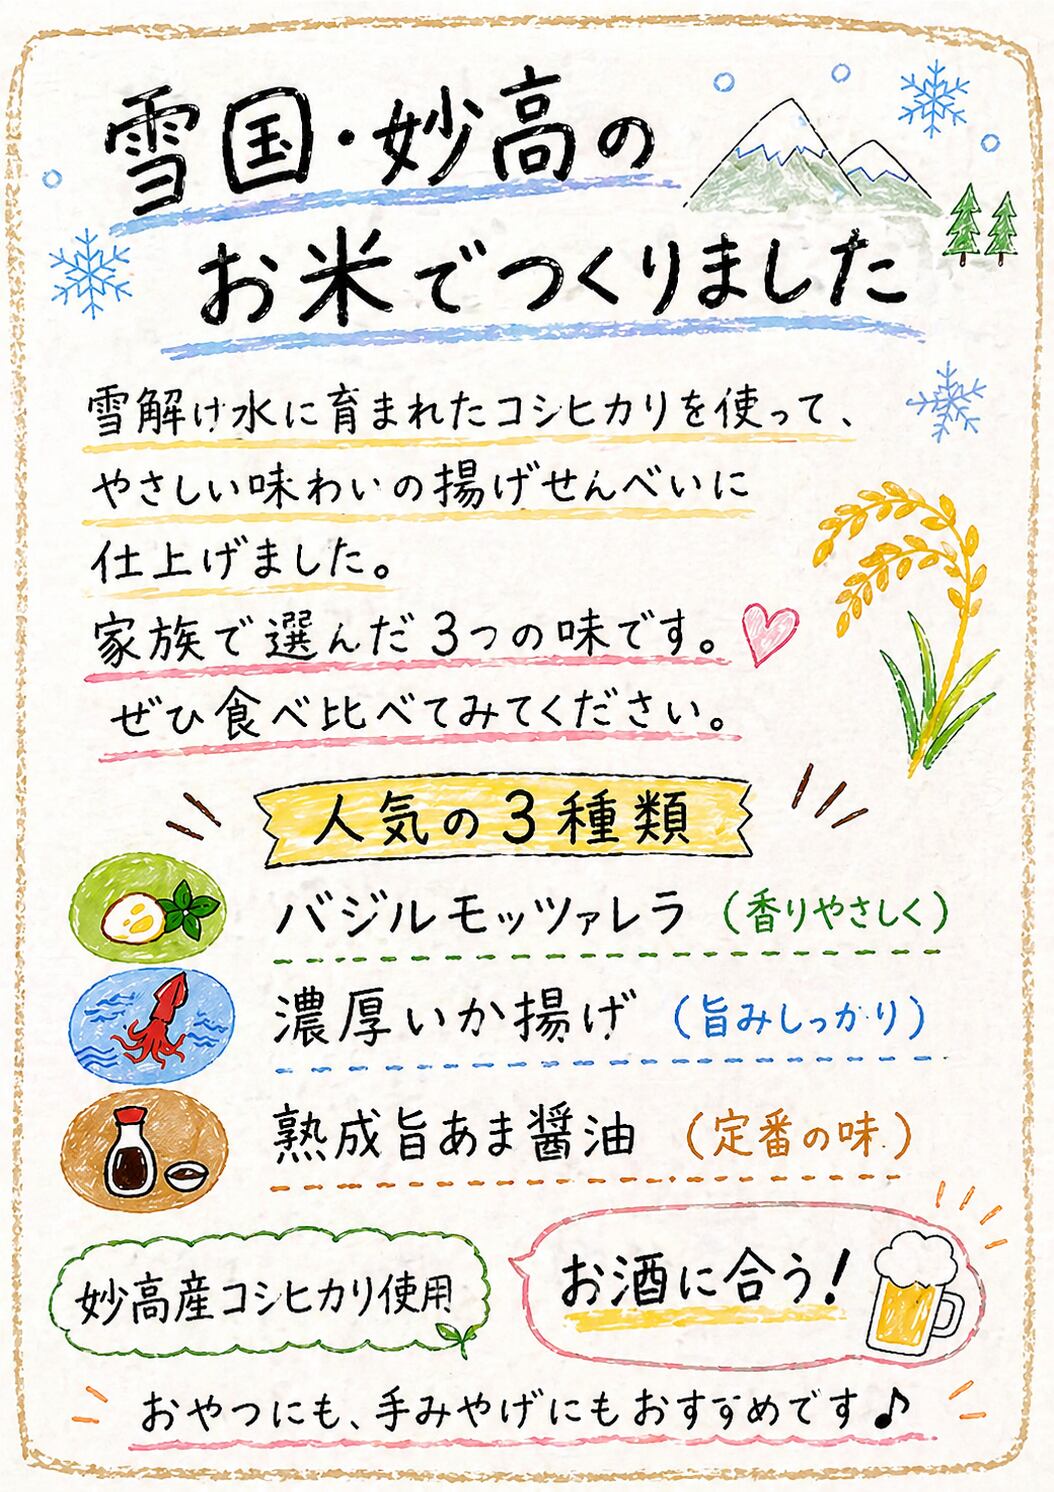 雪国・妙高の
お米でつくりました
雪解け水に育まれたコシヒカリを使って、
やさしい味わいの揚げせんべいに
仕上げました。
家族で選んだ3つの味です。
ぜひ食べ比べてみてください。
人気の3種類
バジルモッツァレラ（香りやさしく）
濃厚いか揚げ（旨みしっかり）
熟成旨あま醤油（定番の味）
妙高産コシヒカリ使用
お酒に合う！
おやつにも、手みやげにもおすすめです♪